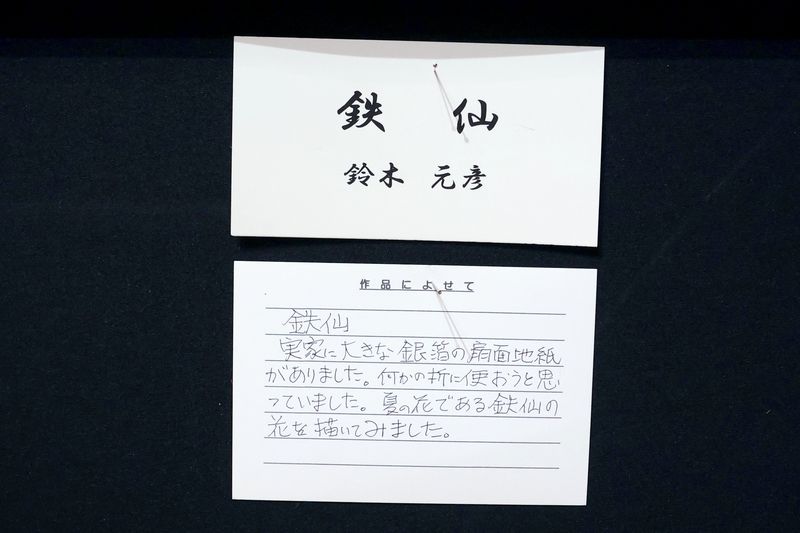 鉄 仙
鈴木 元彦
作品によせて
鉄仙
実家に大きな銀箔の扇面地紙
がありました。何かの折に使おうと思
っていました。夏の花である鉄仙の
花を描いてみました。